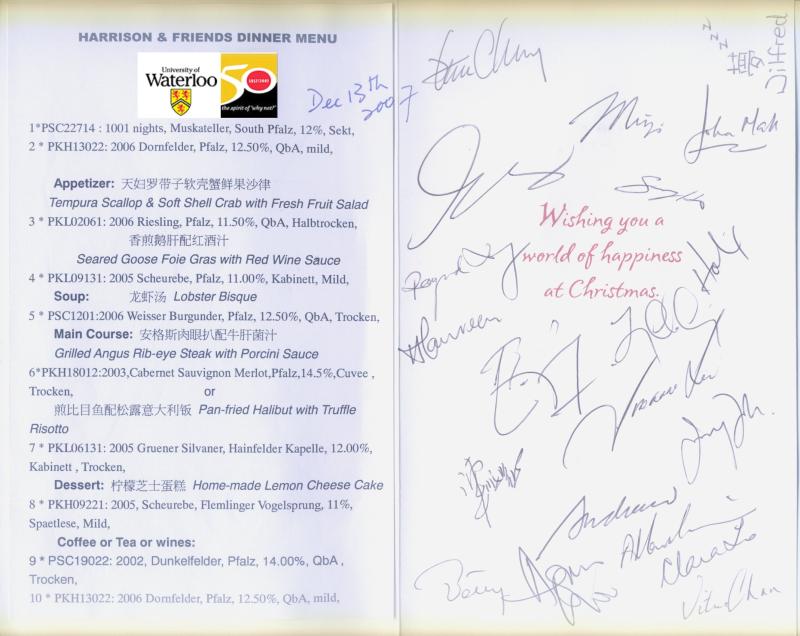 HARRISON & FRIENDS DINNER MENU
University of
Waterloo
50
the spirit of "why not?"
Dec 13th
2007
1*PSC22714 : 1001 nights, Muskateller, South Pfalz, 12%, Sekt,
2 * PKH13022: 2006 Dornfelder, Pfalz, 12.50%, QbA, mild,
Appetizer: 天妇罗带子软壳蟹鲜果沙律
Tempura Scallop & Soft Shell Crab with Fresh Fruit Salad
3 * PKL02061: 2006 Riesling, Pfalz, 11.50%, QbA, Halbtrocken,
香煎鹅肝配红酒汁
Seared Goose Foie Gras with Red Wine Sauce
4 * PKL09131: 2005 Scheurebe, Pfalz, 11.00%, Kabinett, Mild,
Soup: 龙虾汤 Lobster Bisque
5 * PSC1201:2006 Weisser Burgunder, Pfalz, 12.50%, QbA, Trocken,
Main Course: 安格斯肉眼扒配牛肝菌汁
Grilled Angus Rib-eye Steak with Porcini Sauce
6*PKH18012:2003,Cabernet Sauvignon Merlot,Pfalz,14.5%,Cuvee ,
Trocken, or
煎比目鱼配松露意大利饭 Pan-fried Halibut with Truffle
Risotto
7 * PKL06131: 2005 Gruener Silvaner, Hainfelder Kapelle, 12.00%,
Kabinett , Trocken,
Dessert: 柠檬芝士蛋糕 Home-made Lemon Cheese Cake
8 * PKH09221: 2005, Scheurebe, Flemlinger Vogelsprung, 11%,
Spaetlese, Mild,
Coffee or Tea or wines:
9 * PSC19022: 2002, Dunkelfelder, Pfalz, 14.00%, QbA ,
Trocken,
10 * PKH13022: 2006 Dornfelder, Pfalz, 12.50%, QbA, mild,
zzz
Jilfred
John Mak
Wishing you a
world of happiness
at Christmas.
Holi
Maureen
Andrew
Betty
Clara Lo
Chan